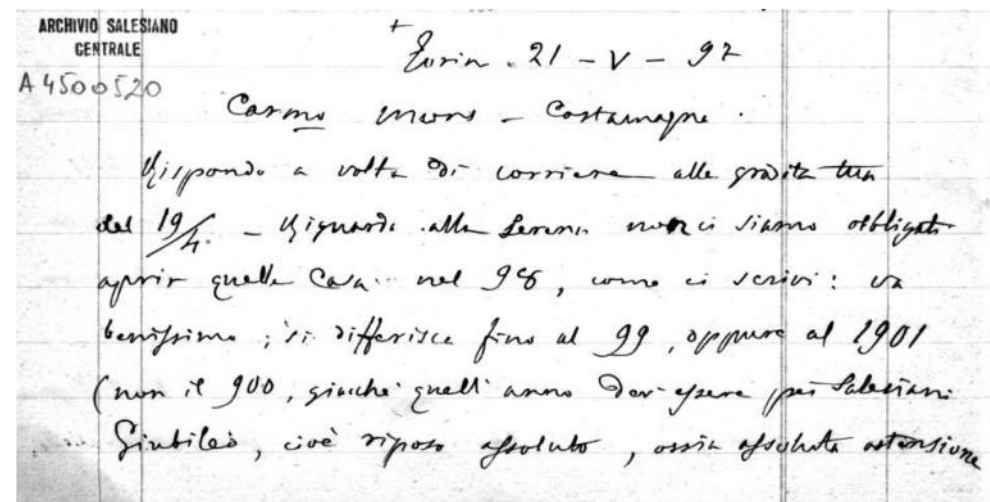 ARCHIVIO SALESIANO
CENTRALE
A 4500520
+
Torin. 21 - V - 97
Carmo Mons - Costamagna.
Rispondo a volta di corriere alla gradita tua
del 19/4. - Riguardo alla Serena non ci siamo obbligati
aprir quella Casa nel 98, come ci scrivi: va
benissimo; si differisce fino al 99, oppure al 1901
(non il 900, giacchè quell'anno dev'essere pei Salesiani
Giubileo, cioè riposo assoluto, ossia assoluta astensione